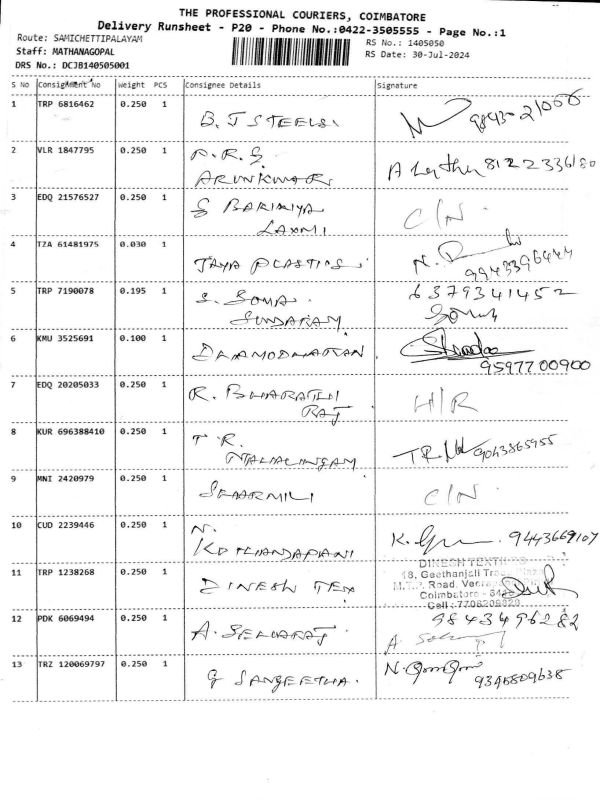 THE PROFESSIONAL COURIERS, COIMBATORE
Delivery Runsheet - P20 - Phone No.:0422-3505555 - Page No.:1
Route: SAMICHETTIPALAYAM
Staff: MATHANAGOPAL
DRS No.: DCJB140505001
RS No.: 1405050
RS Date: 30-Jul-2024
S No Consignment No Weight PCS Consignee Details Signature
1 TRP 6816462 0.250 1 B. J STEELS.
2 VLR 1847795 0.250 1 P.R.S 8122336180
ARUNKUMAR
3 EDQ 21576527 0.250 1 S BARIKIYA C/N
LAXMI
4 TZA 61481975 0.030 1 JAYA PLASTICS. N.
9943396444
5 TRP 7190078 0.195 1 S. SOMA 6379341452
SUNDARAM
6 KMU 3525691 0.100 1 DHAMODHARAN
9597700900
7 EDQ 20205033 0.250 1 R. BHARATHI H/R
RAJ
8 KUR 696388410 0.250 1 T.R.
MAHALINGAM
9 MNI 2420979 0.250 1 SHARMILI C/N
10 CUD 2239446 0.250 1 N. K. 9443669107
KOTHANDAPANI
11 TRP 1238268 0.250 1 DINESH TEX
DINESH TEXTI
18, Geethanjali
Road,
Coimbatore -
Cell:
12 PDK 6069494 0.250 1 A. SELVARAJ 9843496282
A
13 TRZ 120069797 0.250 1 G SANGEETHA. N.
9346809638